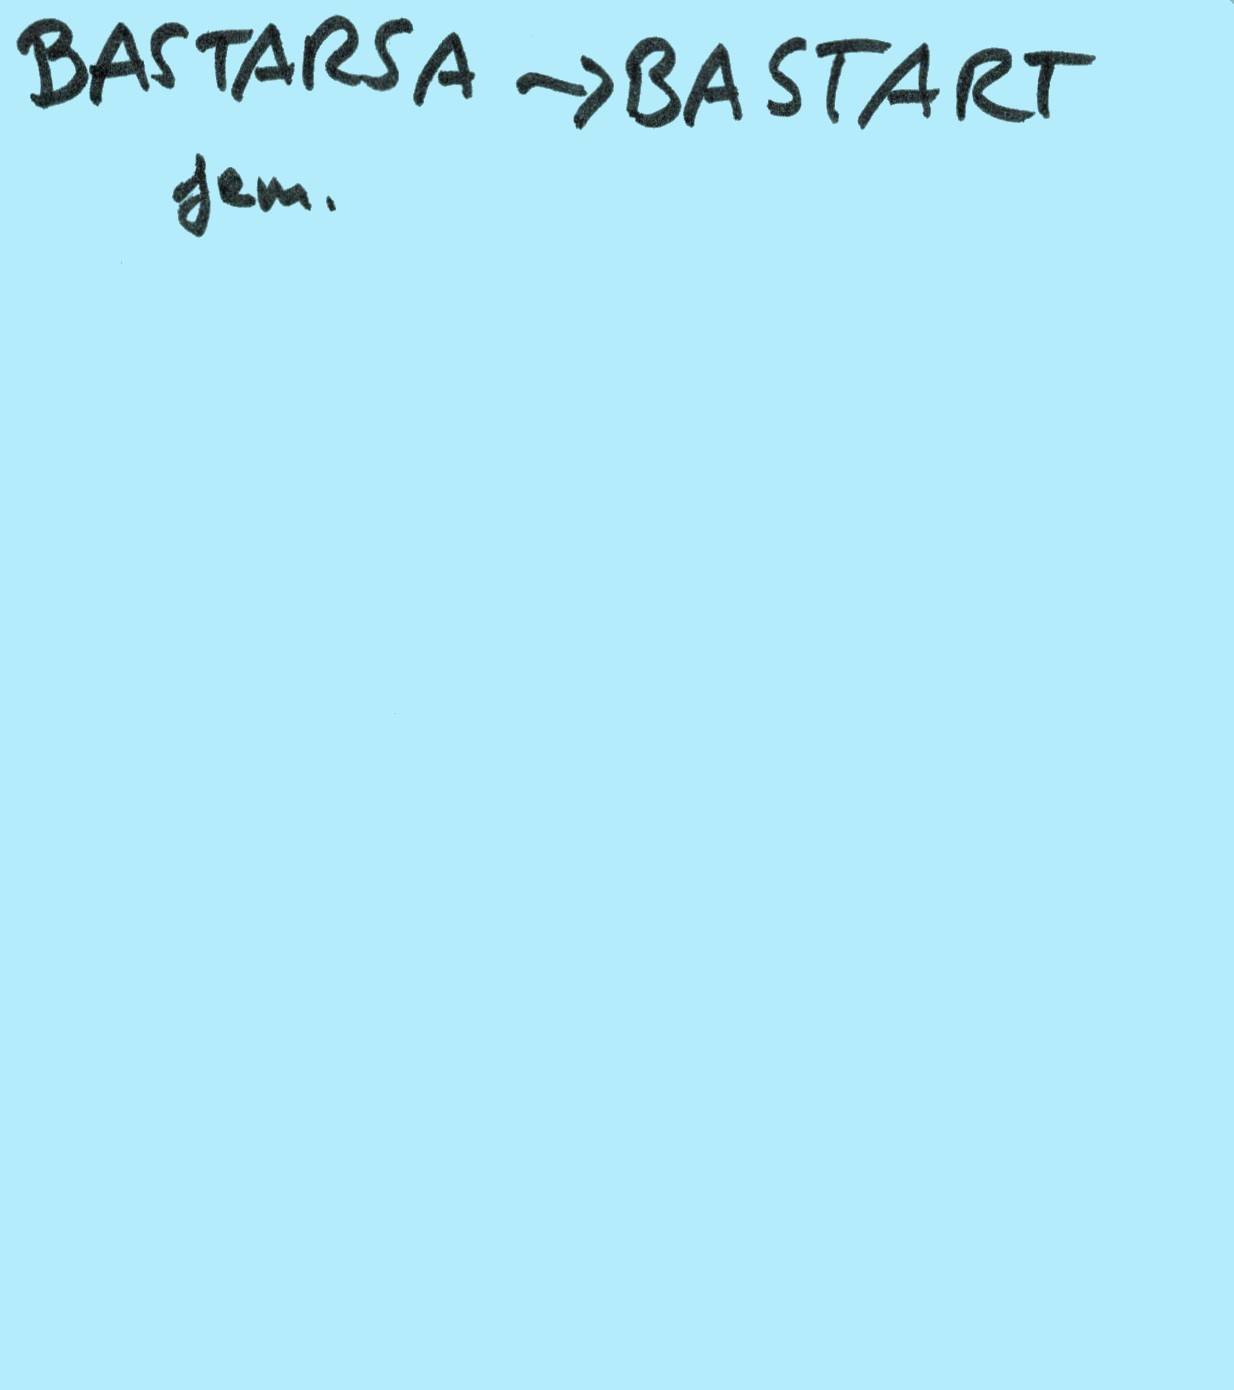 BASTARSA → BASTART
fem.